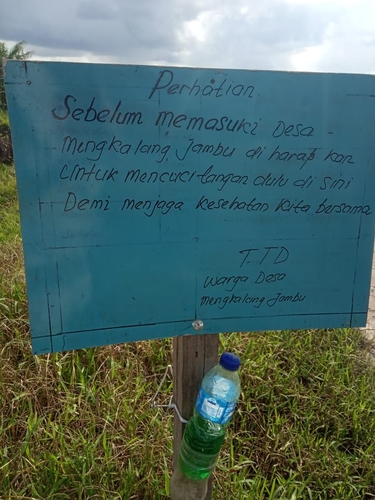 Perhatian
Sebelum memasuki Desa -
Mengkalang Jambu di harap kan
Untuk mencuci tangan dulu di sini
Demi menjaga kesehatan kita bersama
T.TD
Warga Desa
Mengkalang Jambu